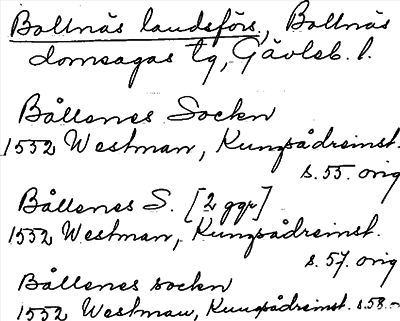 Bollnäs landsförs., Bollnäs
domsagas tg, Gävleb. l.
Bållenes Sockn
1552 Westman, Kungsådreinst.
s. 55. orig
Bållenes S. [2 ggr]
1552 Westman, Kungsådreinst.
s. 57. orig
Bållenes sockn
1552 Westman, Kungsådreinst. s. 58.–